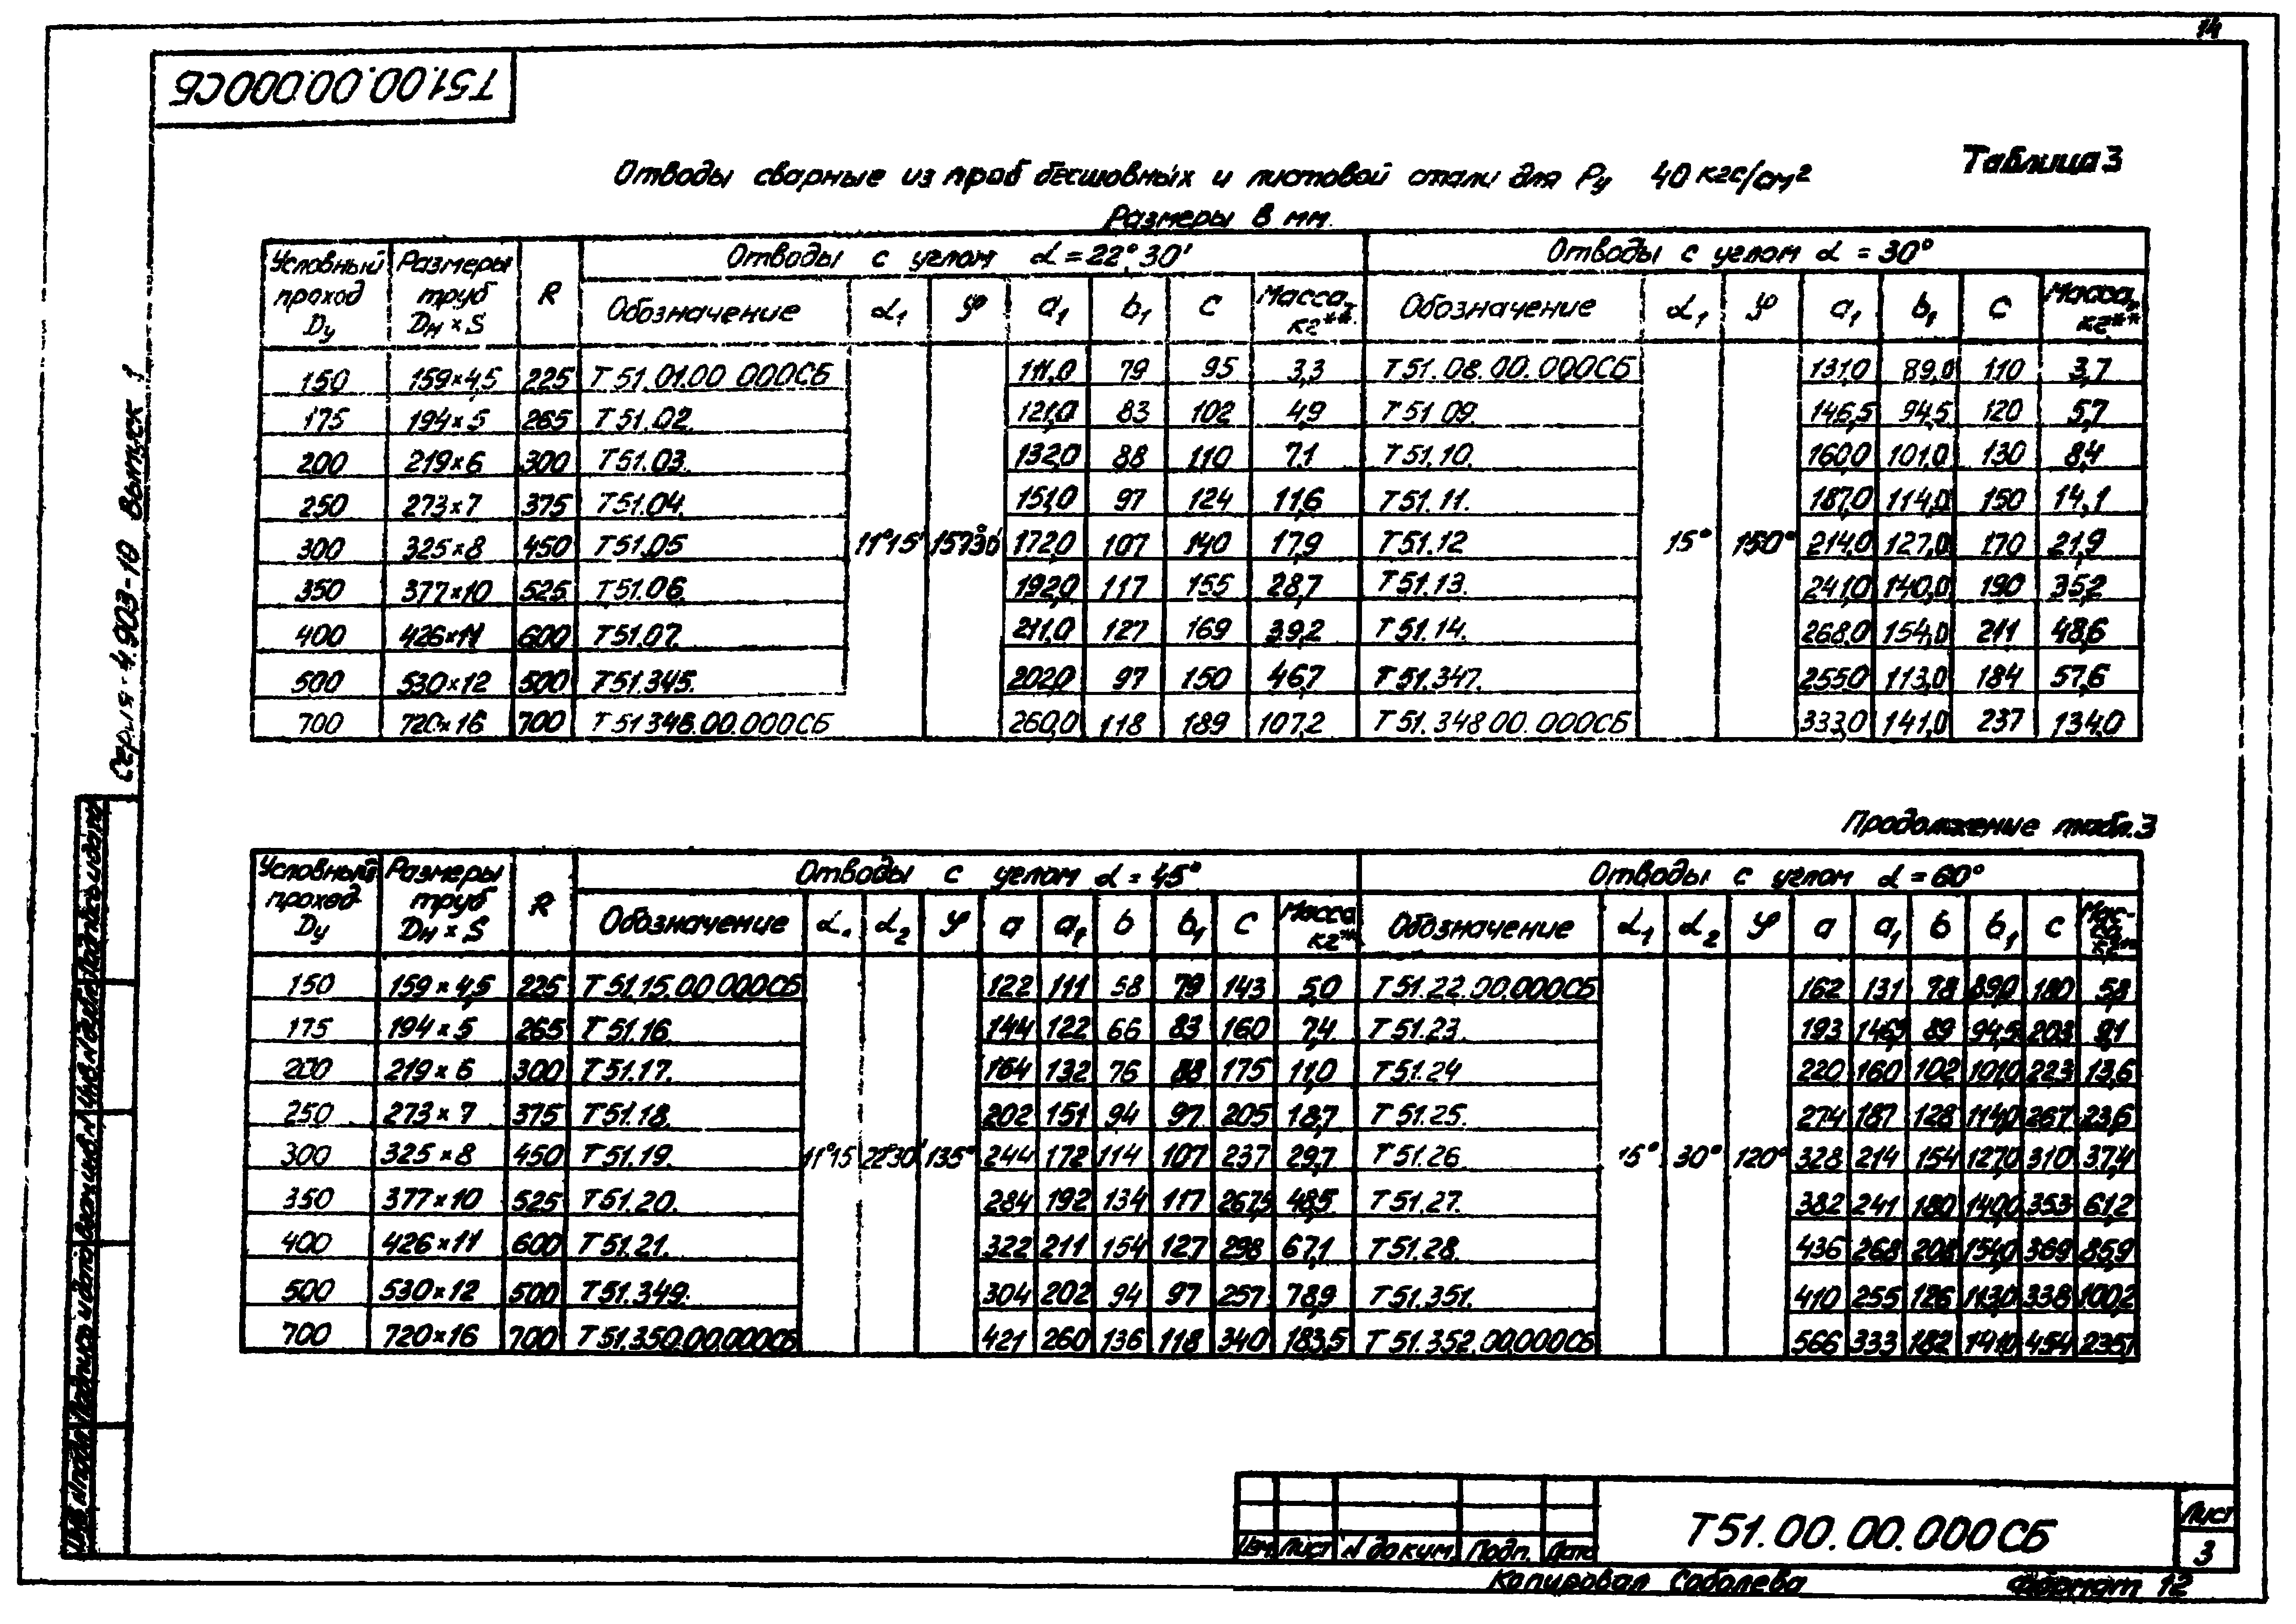 14
Т51.00.00.000СБ
Таблица 3
Отводы сварные из труб бесшовных и листовой стали для Ру 40 кгс/см²
Размеры в мм.
Условный проход Dу | Размеры труб Dн × S | R | Отводы с углом α = 22°30' | Отводы с углом α = 30°
Обозначение | α₁ | φ | a₁ | b₁ | c | Масса, кг** | Обозначение | α₁ | φ | a₁ | b₁ | c | Масса, кг**
150 | 159×4,5 | 225 | Т51.01.00.000СБ | 111,0 | 79 | 95 | 3,3 | Т51.08.00.000СБ | 131,0 | 89,0 | 110 | 3,7
175 | 194×5 | 265 | Т51.02. | 121,0 | 83 | 102 | 4,9 | Т51.09. | 146,5 | 94,5 | 120 | 5,7
200 | 219×6 | 300 | Т51.03. | 132,0 | 88 | 110 | 7,1 | Т51.10. | 160,0 | 101,0 | 130 | 8,4
250 | 273×7 | 375 | Т51.04. | 151,0 | 97 | 124 | 11,6 | Т51.11. | 187,0 | 114,0 | 150 | 14,1
300 | 325×8 | 450 | Т51.05 | 11°15' | 157°30' | 172,0 | 107 | 140 | 17,9 | Т51.12 | 15° | 150° | 214,0 | 127,0 | 170 | 21,9
350 | 377×10 | 525 | Т51.06. | 192,0 | 117 | 155 | 28,7 | Т51.13. | 241,0 | 140,0 | 190 | 35,2
400 | 426×11 | 600 | Т51.07. | 211,0 | 127 | 169 | 39,2 | Т51.14. | 268,0 | 154,0 | 211 | 48,6
500 | 530×12 | 500 | Т51.345. | 202,0 | 97 | 150 | 46,7 | Т51.347. | 255,0 | 113,0 | 184 | 57,6
700 | 720×16 | 700 | Т51.346.00.000СБ | 260,0 | 118 | 189 | 107,2 | Т51.348.00.000СБ | 333,0 | 141,0 | 237 | 134,0
Продолжение табл. 3
Условный проход Dу | Размеры труб Dн × S | R | Отводы с углом α = 45° | Отводы с углом α = 60°
Обозначение | α₁ | α₂ | φ | a | a₁ | b | b₁ | c | Масса кг** | Обозначение | α₁ | α₂ | φ | a | a₁ | b | b₁ | c | Мас-са кг**
150 | 159×4,5 | 225 | Т51.15.00.000СБ | 122 | 111 | 58 | 79 | 143 | 5,0 | Т51.22.00.000СБ | 162 | 131 | 78 | 89,0 | 180 | 5,8
175 | 194×5 | 265 | Т51.16. | 144 | 122 | 66 | 83 | 160 | 7,4 | Т51.23. | 193 | 146,5 | 89 | 94,5 | 203 | 9,1
200 | 219×6 | 300 | Т51.17. | 164 | 132 | 76 | 88 | 175 | 11,0 | Т51.24 | 220 | 160 | 102 | 101,0 | 223 | 13,6
250 | 273×7 | 375 | Т51.18. | 202 | 151 | 94 | 97 | 205 | 18,7 | Т51.25. | 274 | 187 | 128 | 114,0 | 267 | 23,6
300 | 325×8 | 450 | Т51.19. | 11°15' | 22°30' | 135° | 244 | 172 | 114 | 107 | 237 | 29,7 | Т51.26. | 15° | 30° | 120° | 328 | 214 | 154 | 127,0 | 310 | 37,4
350 | 377×10 | 525 | Т51.20. | 284 | 192 | 134 | 117 | 267,5 | 48,5 | Т51.27. | 382 | 241 | 180 | 140,0 | 353 | 61,2
400 | 426×11 | 600 | Т51.21. | 322 | 211 | 154 | 127 | 298 | 67,1 | Т51.28. | 436 | 268 | 208 | 154,0 | 369 | 85,9
500 | 530×12 | 500 | Т51.349. | 304 | 202 | 94 | 97 | 257 | 78,9 | Т51.351. | 410 | 255 | 126 | 113,0 | 338 | 100,2
700 | 720×16 | 700 | Т51.350.00.000СБ | 421 | 260 | 136 | 118 | 340 | 183,5 | Т51.352.00.000СБ | 566 | 333 | 182 | 141,0 | 454 | 235,1
Серия-4.903-10 Выпуск 1
Инв.№подл. Подпись и дата Взам.инв.№ Инв.№дубл. Подпись и дата
Изм. Лист № докум. Подп. Дата
Т51.00.00.000СБ
Лист
3
Копировал Соболева
Формат 12